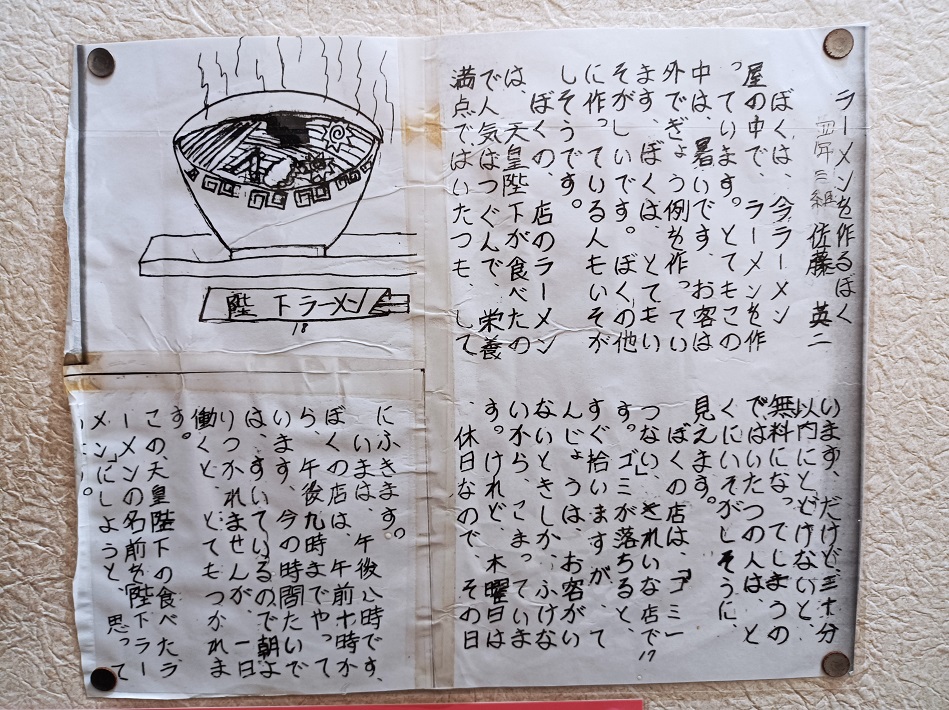 ラーメンを作るぼく
四年三組 佐藤 英二
ぼくは、今ラーメン
屋の中で、ラーメンを作
っています。とてもこの
中は、暑いです。お客は
外でぎょう例を作ってい
ます。ぼくは、とてもい
そがしいです。ぼくの他
に作っている人もいそが
しそうです。
ぼくの、店のラーメン
は、天皇陛下が食べたの
で人気はつぐんで、栄養
満点ではいたつも、して
います。だけど、三十分
以内にとどけないと、
無料になってしまうの
ではいたつの人は、と
くにいそがしそうに、
見えます。
ぼくの店は、「ゴミ一
つない」きれいな店で
す。ゴミが落ちると、
すぐ拾いますが、て
んじょうは、お客がい
ないときしか、ふけな
いから、こまっていま
す。けれど、木曜日は
、休日なので、その日
17
陛下ラーメン
18
にふきます。
いまは、午後八時です、
ぼくの店は、午前十時か
ら、午後九時までやって
います、今の時間たいで
は、すいているので朝よ
りつかれませんが、一日
働くと、とてもつかれま
す。
この、天皇陛下の食べたラ
ーメンの名前を「陛下ラー
メン」にしようと、思って